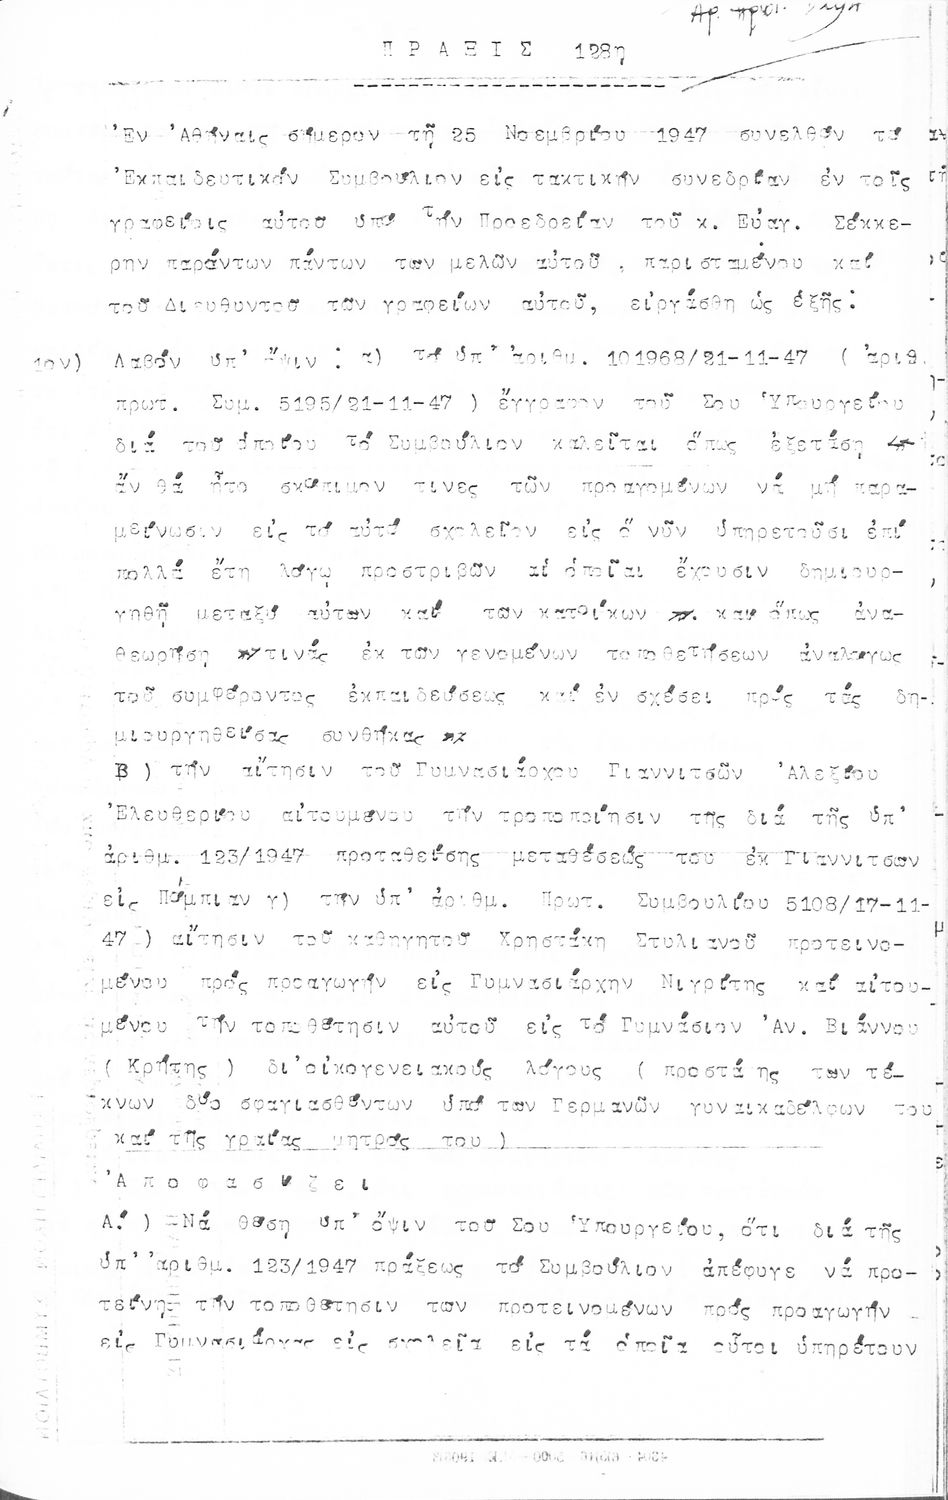 Αρ. πρωτ.
ΠΡΑΞΙΣ 128η
Ἐν Ἀθήναις σήμερον τῇ 25 Νοεμβρίου 1947 συνελθόν τό
Ἐκπαιδευτικόν Συμβούλιον εἰς τακτικήν συνεδρίαν ἐν τοῖς
γραφείοις αὐτοῦ ὑπό τήν Προεδρείαν τοῦ κ. Εὐαγ. Σέκκε-
ρην παρόντων πάντων των μελῶν αὐτοῦ , παρισταμένου καί
τοῦ Διευθυντοῦ τῶν γραφείων αὐτοῦ, εἰργάσθη ὡς ἑξῆς:
1ον) Λαβόν ὑπ' ὄψιν : α) τό ὑπ' ἀριθμ. 101968/21-11-47 ( ἀριθ.
πρωτ. Συμ. 5195/21-11-47 ) ἔγγραφον τοῦ Σου Ὑπουργείου
διά τοῦ ὁποίου τό Συμβούλιον καλεῖται ὅπως ἐξετάση
ἄν θά ἦτο σκόπιμον τινες τῶν προαγομένων νά μή παρα-
μείνωσιν εἰς τό αὐτό σχολεῖον εἰς ὅ νῦν ὑπηρετοῦσι ἐπί
πολλά ἔτη λόγῳ προστριβῶν αἱ ὁποῖαι ἔχουσιν δημιουρ-
γηθῆ μεταξύ αὐτων καί των κατοίκων και ὅπως ἀνα-
θεωρήση τινάς ἐκ τῶν γενομένων τοποθετήσεων ἀναλόγως
τοῦ συμφέροντος ἐκπαιδεύσεως καί ἐν σχέσει πρός τάς δη-
μιουργηθείσας συνθήκας
Β ) τήν αἴτησιν τοῦ Γυμνασιάρχου Γιαννιτσῶν Ἀλεξίου
Ἐλευθερίου αἰτουμένου τήν τροποποίησιν τῆς διά τῆς ὑπ'
ἀριθμ. 123/1947 προταθείσης μεταθέσεώς του ἐκ Γιαννιτσων
εἰς Πόμπιαν γ) την ὑπ' ἀριθμ. Πρωτ. Συμβουλίου 5108/17-11-
47 ) αἴτησιν τοῦ καθηγητοῦ Χρηστάκη Στυλιανοῦ προτεινο-
μένου πρός προαγωγήν εἰς Γυμνασιάρχην Νιγρίτης καί αἰτου-
μένου τήν τοποθέτησιν αὐτοῦ εἰς τό Γυμνάσιον Ἀν. Βιάννου
( Κρήτης ) δι'οἰκογενειακούς λόγους ( προστά ης των τέ-
κνων δύο σφαγιασθέντων ὑπό των Γερμανῶν γυναικαδέλφων του
καί τῆς γραίας μητρός του )
Ἀποφασίζει
Α.) Νά θέση ὑπ' ὄψιν τοῦ Σου Ὑπουργείου, ὅτι διά τῆς
ὑπ' ἀριθμ. 123/1947 πράξεως τό Συμβούλιον ἀπέφυγε νά προ-
τείνη τήν τοποθέτησιν των προτεινομένων πρός προαγωγήν
εἰς Γυμνασιάρχας εἰς σχολεῖα εἰς τά ὁποῖα οὗτοι ὑπηρέτουν